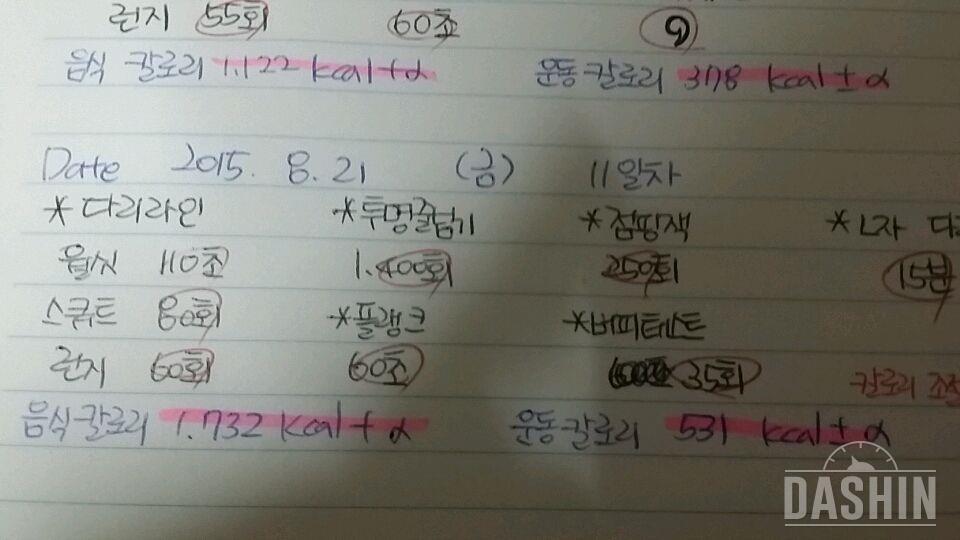 런지 55회 60초
음식 칼로리 1.122 kcal+α 운동 칼로리 378 kcal ± α
Date 2015. 8. 21 (금) 11일차
*다리라인 *투명줄넘기 *점핑잭 *L자 다
월싯 110초 1.400회 250회 15분
스쿼트 80회 *플랭크 *버피테스트
런지 60회 60초 35회 칼로리 조절
음식 칼로리 1.732 kcal + α 운동 칼로리 531 kcal ± α
DASHIN